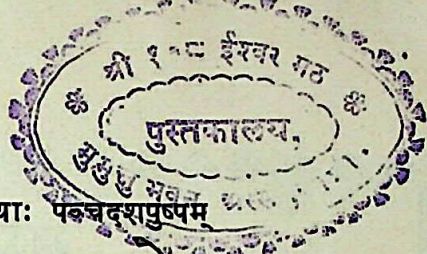 श्री १०८ ईश्वर मठ
पुस्तकालय,
मुमुक्षु भवन
याः पञ्चदशपुष्पम्